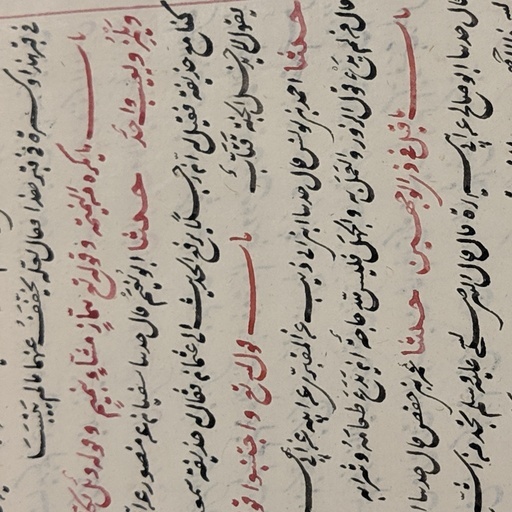 في قبر هذا وكسرة في قبر هذا فقال لعله يخفف عنهما ما لم ييبسا
باب ما يكره من النميمة وقوله تع همّاز مشّاء بنميم وقوله ويل لكل
ويلمز ويعيب واحد حدثنا ابو نُعيم قال حدثنا سفيان عن منصور عن
كنا مع حذيفة فقيل له انّ رجلاً يرفع الحديث الى عثمان فقال له حذيفة سمعت
يقول لا يدخل الجنة قتّات باب قول الله تع واجتنبوا قول
حدثنا احمد بن يونس قال حدثنا ابن ابي ذيب عن المقبري عن ابيه عن ابي
قال من لم يدع قول الزور والعمل به والجهل فليس لله حاجة ان يدع طعامه وشرابه
باب ما قيل في ذي الوجهين حدثنا عمر بن حفص قال حدثنا
قال حدثنا ابو صالح عن ابي هريرة قال قال النبي صلى الله عليه وسلم تجد من اشر